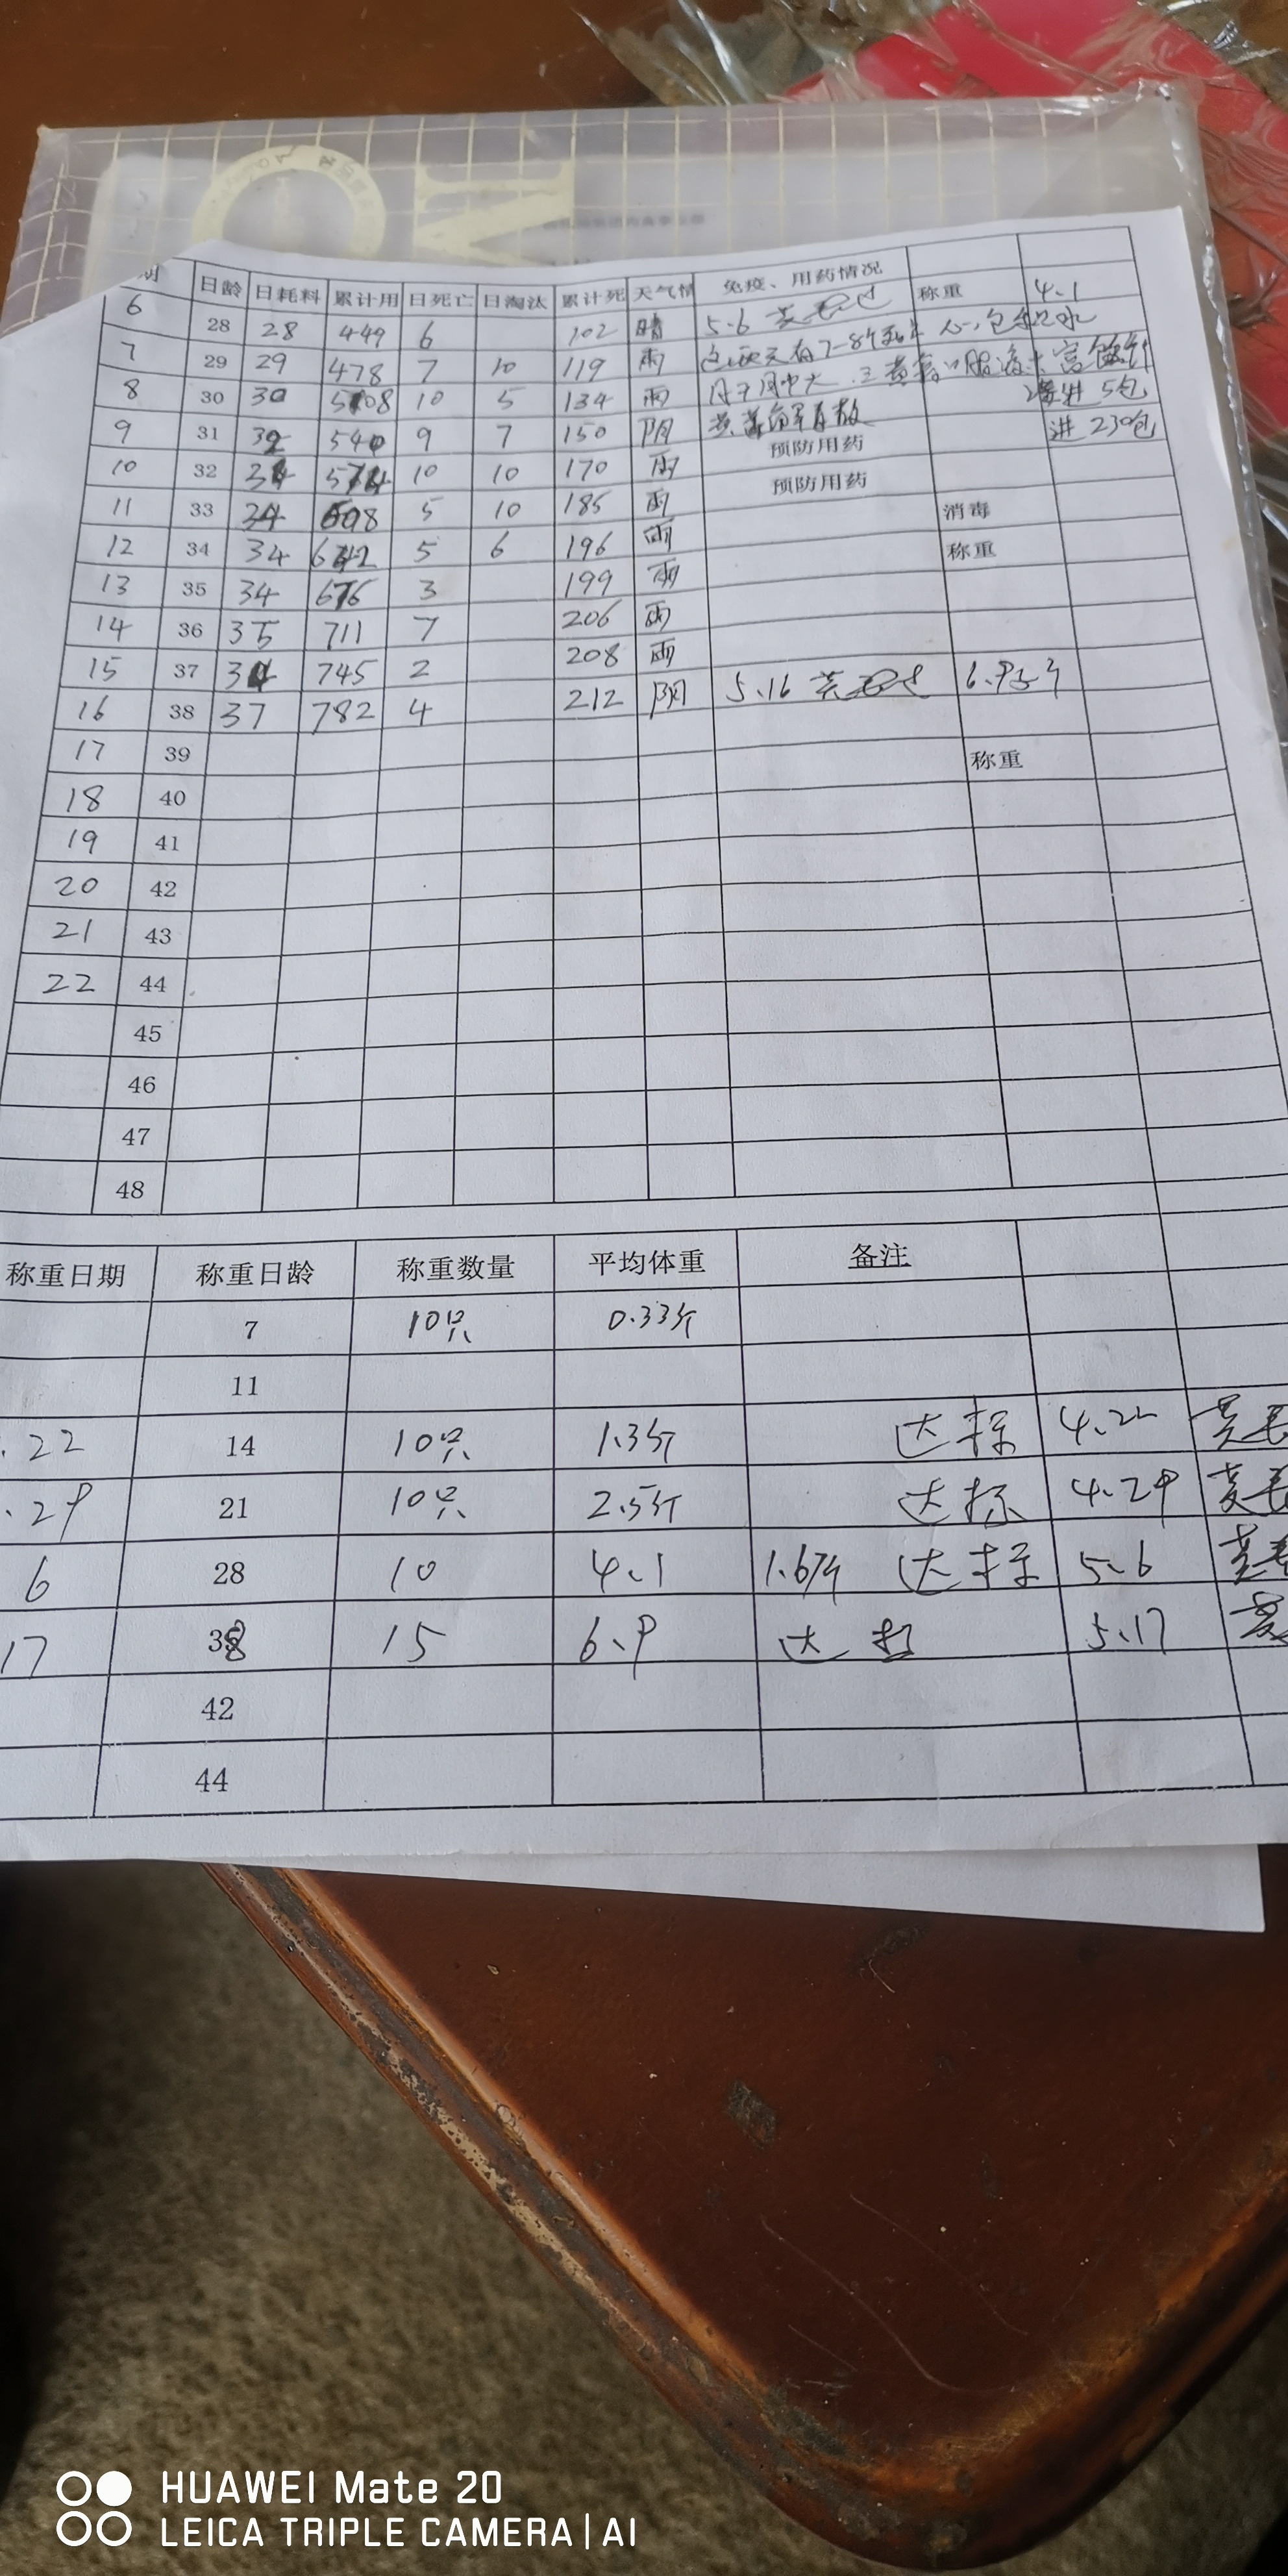 期 日龄 日耗料 累计用 日死亡 日淘汰 累计死 天气情 免疫、用药情况
6 28 28 449 6 102 晴 5.6 称重 4.1
7 29 29 478 7 10 119 雨 这两天有7-8个 心包积水
8 30 30 508 10 5 134 雨 口服液
9 31 32 540 9 7 150 阴 进 5包
10 32 34 574 10 10 170 雨 预防用药 进 230包
11 33 34 608 5 10 185 雨 预防用药
12 34 34 642 5 6 196 雨 消毒
13 35 34 676 3 199 雨 称重
14 36 35 711 7 206 雨
15 37 34 745 2 208 雨
16 38 37 782 4 212 阴 5.16 6.9斤
17 39
18 40 称重
19 41
20 42
21 43
22 44
45
46
47
48
称重日期 称重日龄 称重数量 平均体重 备注
7 10只 0.33斤
11
.22 14 10只 1.3斤 达标 4.22
.29 21 10只 2.5斤 达标 4.29
6 28 10 4.1 1.6斤 达标 5.6
17 38 15 6.9 达标 5.17
42
44
HUAWEI Mate 20
LEICA TRIPLE CAMERA | AI